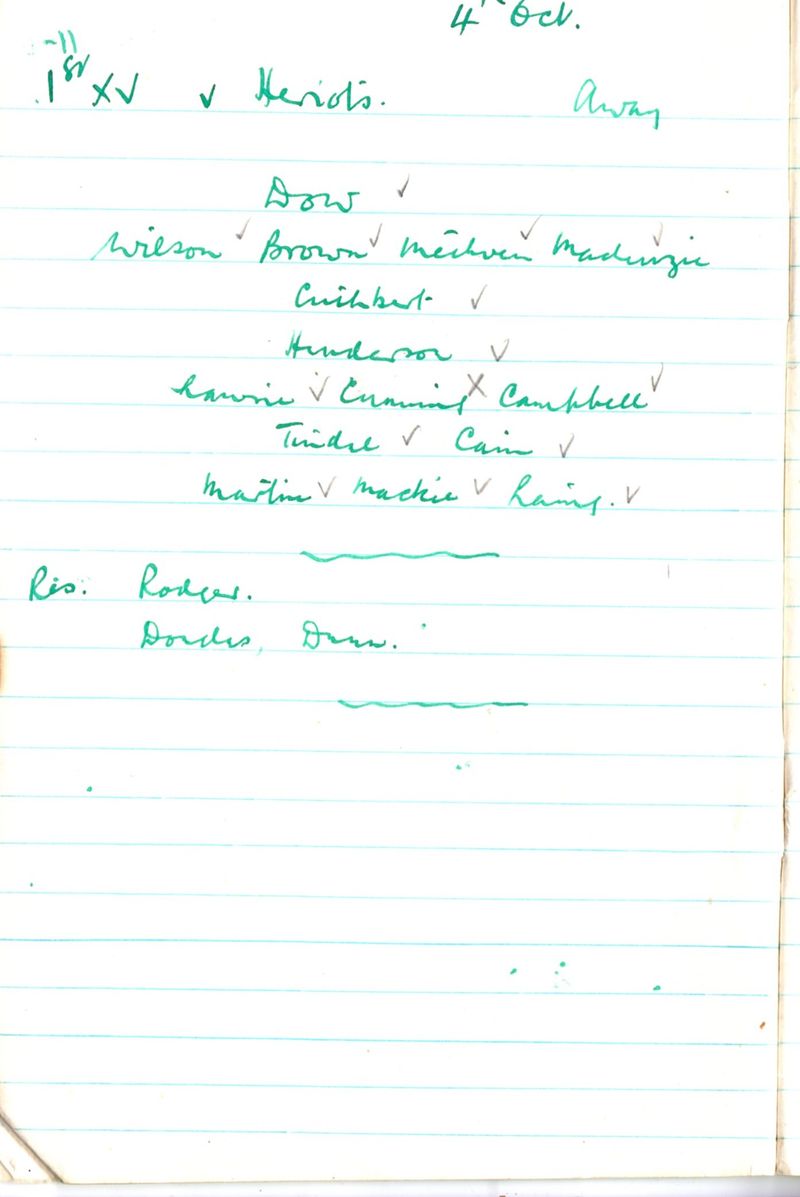 4th Oct.
1st XV v Heriots. Away
Dow ✓
Wilson ✓ Brown ✓ Methven ✓ Mackenzie ✓
Cuthbert ✓
Henderson ✓
Lawrie ✓ Cumming X Campbell ✓
Tindal ✓ Cain ✓
Martin ✓ Mackie ✓ Laing. ✓
Res. Rodger.
Dunn.